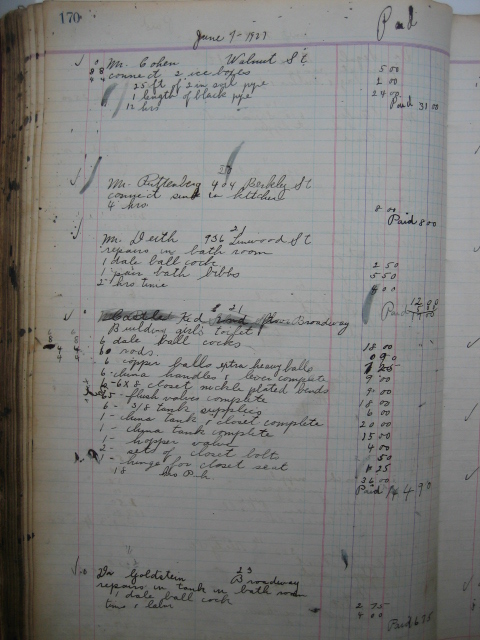 170
June 7 - 1927
Paid
Mr. Cohen Walnut St
connect 2 ice boxes 5 00
25 ft of 2 in soil pipe
1 length of black pipe 2 00
12 hrs 24 00
Paid 31 00
Mr. Ruttenberg 404 Berkley St
connect sink in kitchen
4 hrs 8 00
Paid 8 00
Mr. Deith 936 Linwood St
repairs in bath room
1 dale ball cock 2 50
1 pair bath bibbs 5 50
2 hrs time 4 00
Paid
Broadway
Building girls toilet
6 dale ball cocks 18 00
6 rods. 0 90
6 copper balls extra heavy balls
6 china handles & lever complete 9 00
6 - 6x8 closet nickle plated bends 9 00
flush valves complete 18 00
6 - 3/8 tank supplies 6 00
1 - china tank & closet complete 20 00
1 - china tank complete 15 00
1 - hopper valve 4 00
2 - sets of closet bolts 50
1 - hinge for closet seat
18 hrs 36 00
Paid
Dr Goldstein 23 Broadway
repairs in tank in bath room
1 dale ball cock 2 75
time & labor 4 00
Paid 6 75